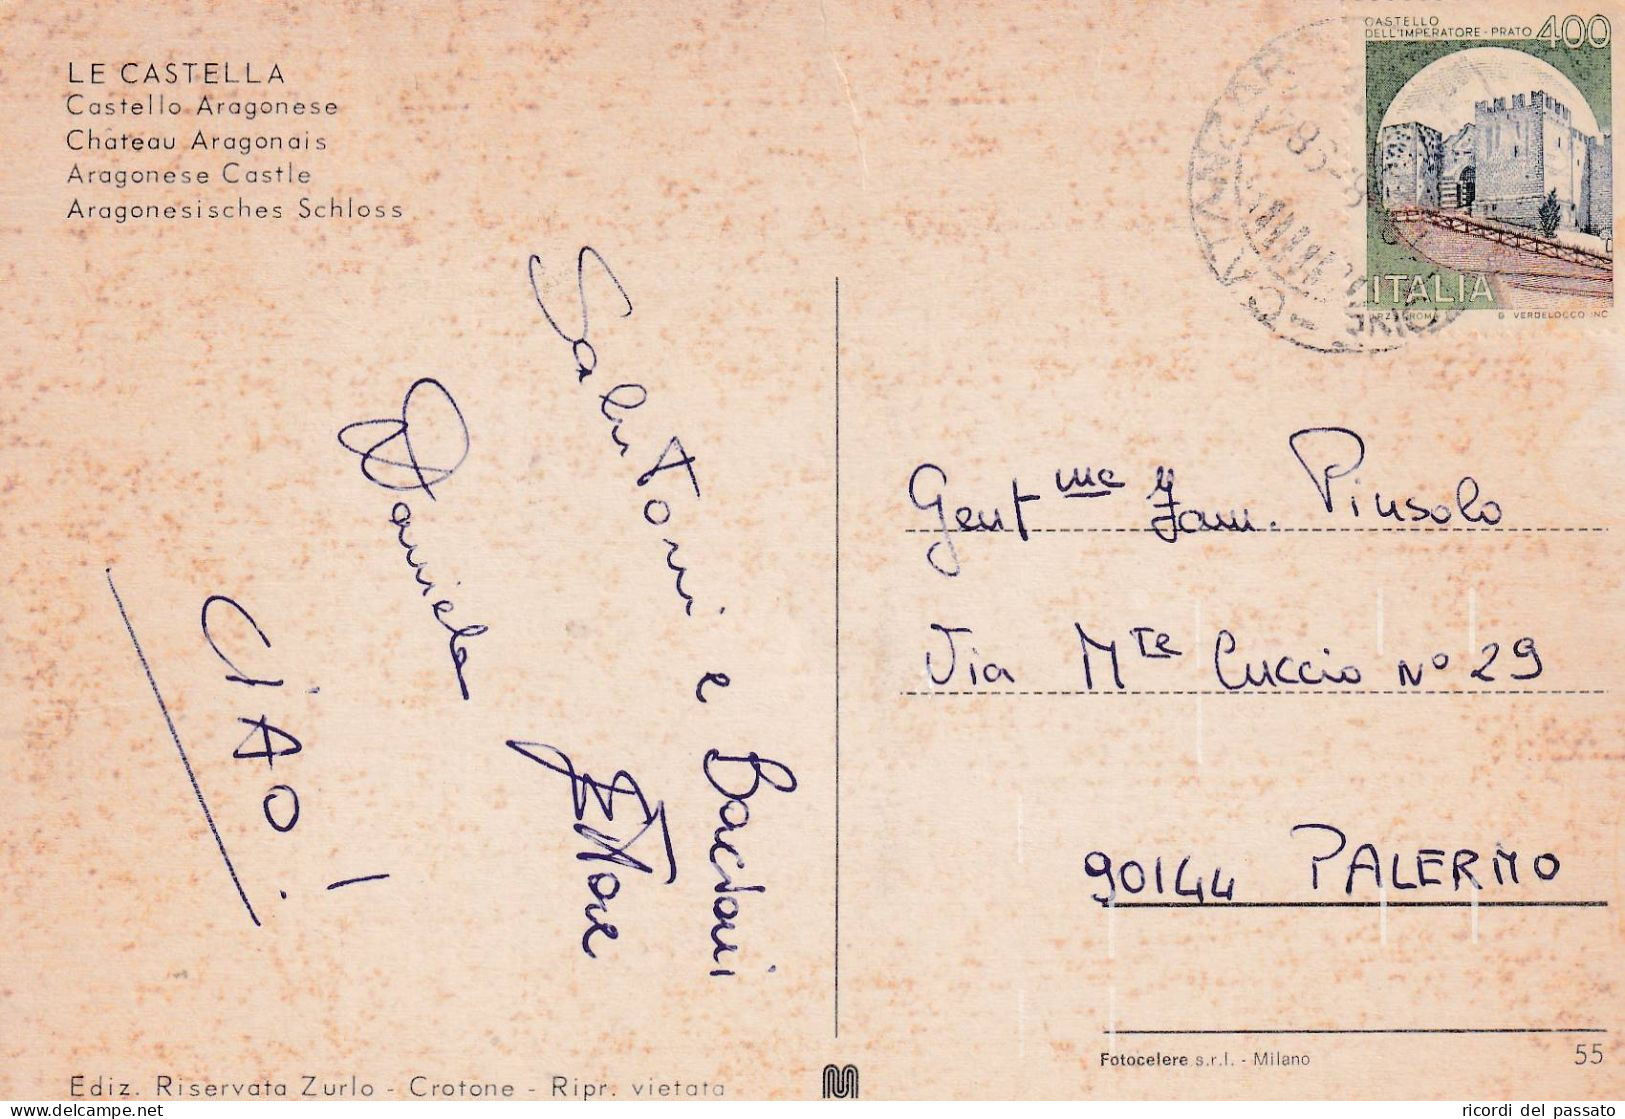 LE CASTELLA
Castello Aragonese
Château Aragonais
Aragonese Castle
Aragonesisches Schloss
Salutoni e Bacioni
Daniela
Ettore
CIAO!
Ediz. Riservata Zurlo - Crotone - Ripr. vietata
CASTELLO
DELL'IMPERATORE - PRATO 400
ITALIA
ROMA
VERDELOCCO INC
CATANZARO
Gent.me Fam. Pinsolo
Via Mte Cuccio No 29
90144 PALERMO
Fotocelere s.r.l. - Milano
55
ricordi del passato